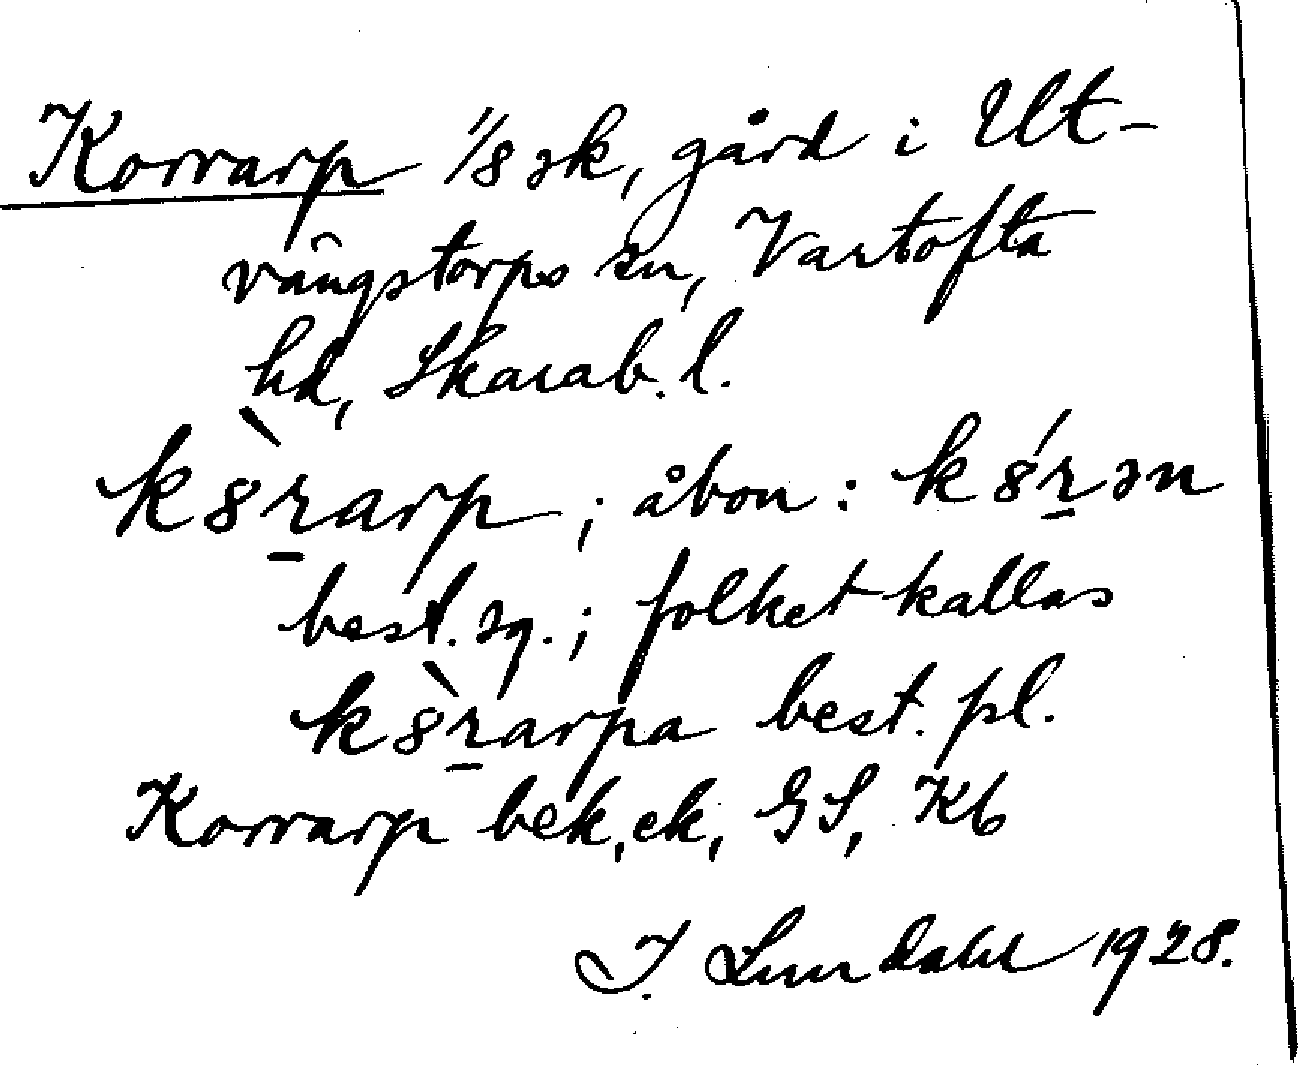 Korrarp 1/8 sk, gård i Ut-
vängstorps sn, Vartofta
hd, Skarab. l.
k8̀r̲arp ; åbon : k8́r̲ən
best. sg. ; folket kallas
k8̀r̲arpa best. pl.
Korrarp bek, ek, GS, Kb
I. Lundahl 1928.